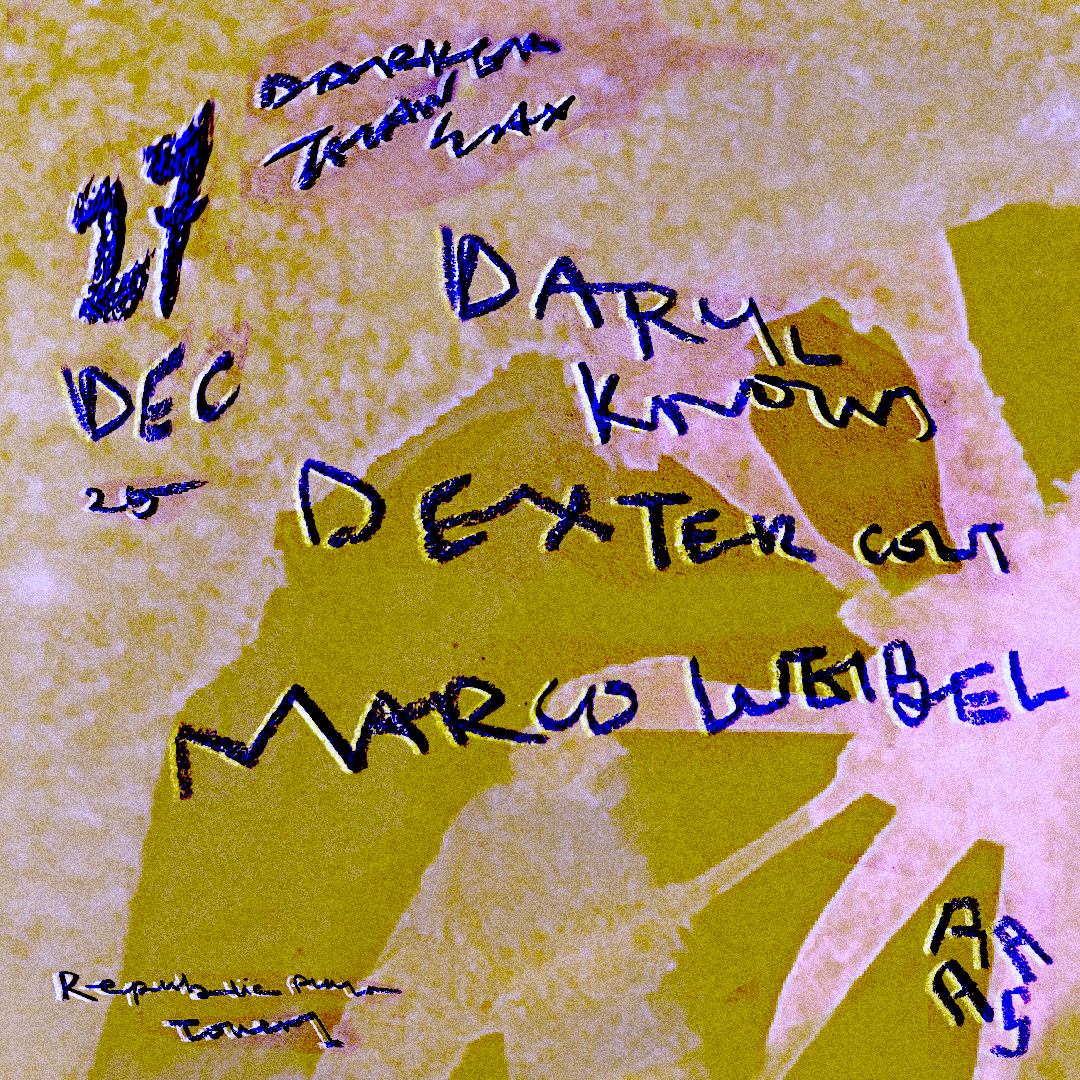 DARKER
THAN WAX
27
DEC
25
DARYL
KNOWS
DEXTER COLT
MARCO WEIBEL
Republic
Tower
A A
A S